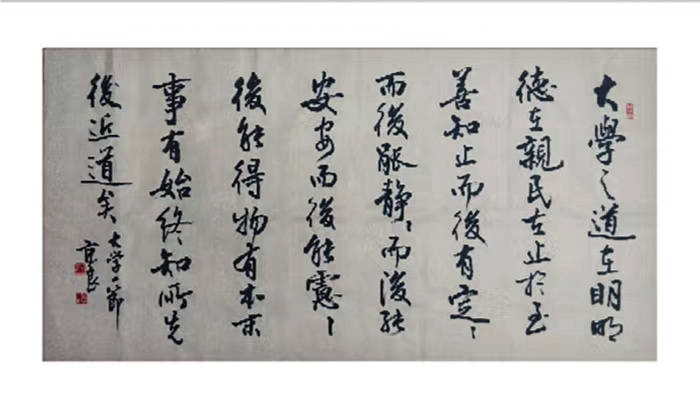 大學之道在明明
德在親民在止於至
善知止而後有定々
而後能静々而後能
安安而後能慮々
後能得物有本末
事有始終知所先
後近道矣
大学一節
京良